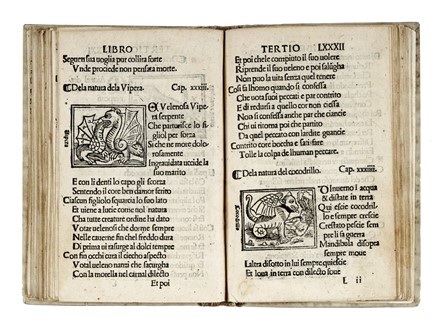 LIBRO
Seguen sua voglia pur collira forte
Unde prociede non pensata morte.
❡ Dela natura dela Vipera. Cap. xxxiii.
E Uvelenosa Vipera
serpente
Che parturisce lo fi
gliol per forza
Si che ne more dolo
rosamente
Ingrauidata uccide la
suo marito
E con li denti lo capo gli scorza
Sentendo il core ben damor ferito
Ciascun figliolo squarcia lo suo lato
Et uiene a lucie come nol natura
Cha tutte creature ordine ha dato
Votar uelenosi che dorme sempre
Nelle cauerne fin chel freddo dura
Di prima ui rasurge al dolci tempre
Con fin occhi cura il ciecho aspecto
Votal ueleno nanzi che sacurgha
Con la morella nel carnal dilecto
Et poi
TERTIO LXXXII
Et poi chele compiuto il suo uolere
Riprende il suo ueleno e poi
Non puo la uita senza quel tenere
Cosi fa lhomo quando si confessa
Che uota suoi peccati e par contrito
E di redursi a quello cor non ciessa
Non si confessa anche par che cianci
Chi ui ritorna poi che partito
Da quel peccaro con lardite guancie
Contrito core boccha e satisfare
Tolle la colpa de lhuman peccare.
❡ Dela natura del cocodrillo. Cap. xxxiiii.
D Inuerno i acqua
& distate in terra
Qui escie cocodril
lo e sempre crescie
Crestato pescie sem
pre li fa guerra
Mandibula disopra
sempre moue
Laltra disotto in lui sempre quiescie
Et loua in terra con dilecto foue
L ii